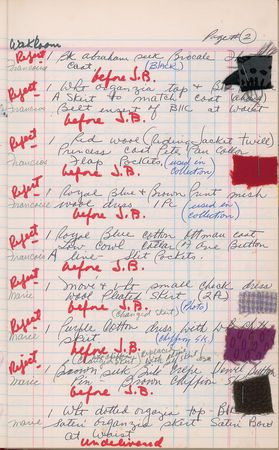 Page # 2
WorkRoom
Reject 1 Blk abraham silk Brocade
Francoise Coat. (Black)
before J.B.
Reject 1 Wht organzia top & Blk
Francoise A Skirt to match coat (above)
Belt insert of Blk at waist
before J.B.
Reject 1 Red wool (Riding Jacket twill)
Princess Coat
Francoise Flap Pockets. (used in
before J.B. collection)
Reject 1 Royal Blue & Brown Print mesh
Francoise wool dress. 1 Pc (used in
before J.B. collection)
Reject 1 Royal Blue cotton ottman coat
Low Cowl Collar & one Button
Francoise A line - Slit Pockets.
before J.B.
Reject 1 Move & wht small check dress
Marie wool Pleated Skirt (2A)
before J.B. (Photo)
(Changed skirt)
Reject 1 Purple Cotton dress, with
Marie skirt (chiffon silk)
before J.B.
Reject 1 Brown silk Crepe Jewel Button
Marie Pin - Brown Chiffon
before J.B.
1 Wht dotted organzia top - Blk
Marie Satin organzia skirt Satin Bow
at Waist
undelivered